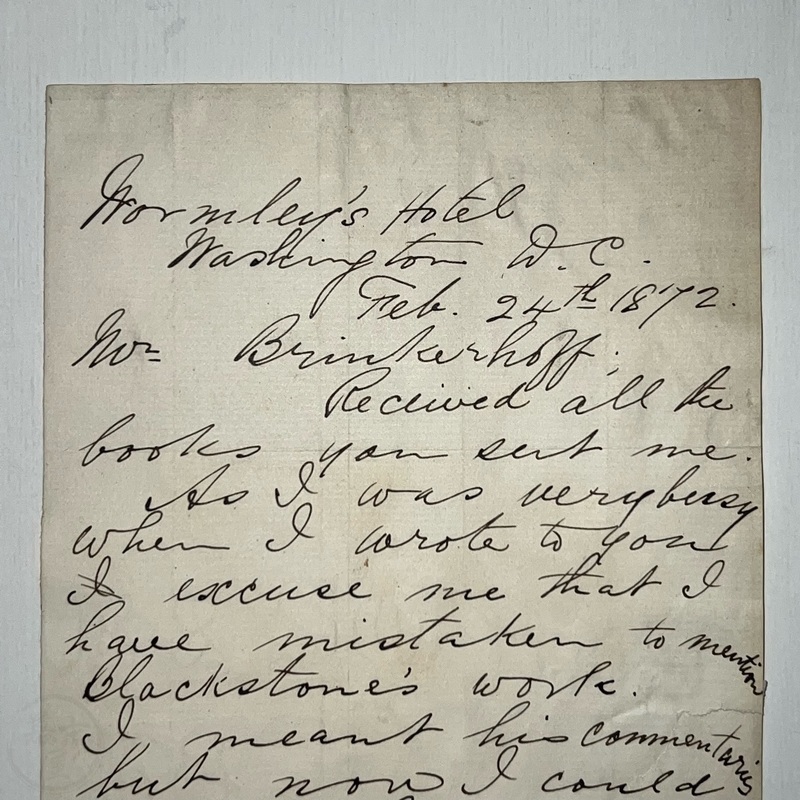 Wormley's Hotel
Washington D.C.
Feb. 24th 1872.
Mr Brinkerhoff;
Received all the
books you sent me.
As I was very busy
when I wrote to you
I excuse me that I
have mistaken to mention
Blackstone's work.
I meant his commentaries
but now I could